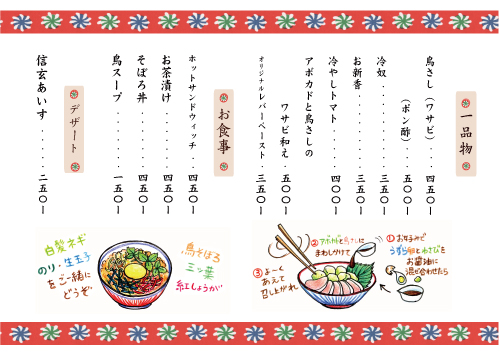 一品物
鳥さし（ワサビ）...四五〇ー
（ポン酢）...五〇〇ー
冷奴...三五〇ー
お新香...三五〇ー
冷やしトマト...四〇〇ー
アボカドと鳥さしの
ワサビ和え.五〇〇ー
オリジナルレバーペースト.三五〇ー
お食事
ホットサンドウィッチ...四五〇ー
お茶漬け...四五〇ー
そぼろ丼...四五〇ー
鳥スープ...一五〇ー
デザート
信玄あいす...二五〇ー
白髪ネギ
のり・生玉子
をご一緒に
どうぞ
鳥そぼろ
三ツ葉
紅しょうが
①お好みで
うずら卵とわさびを
お醤油に
混ぜ合わせたら
②アボカドと鳥さしに
まわしかけて
③よーく
あえて
召し上がれ